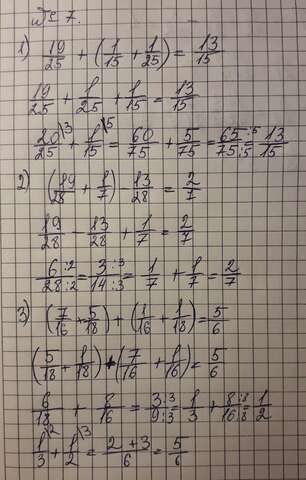 № 7.
1) 19/25 + (1/15 + 1/25) = 13/15
19/25 + 1/25 + 1/15 = 13/15
20\3/25 + 1\5/15 = 60/75 + 5/75 = 65:5/75:5 = 13/15
2) (19/28 + 1/7) - 13/28 = 2/7
19/28 - 13/28 + 1/7 = 2/7
6:2/28:2 = 3:3/14:3 = 1/7 + 1/7 = 2/7
3) (7/16 + 5/18) + (1/16 + 1/18) = 5/6
(5/18 + 1/18) + (7/16 + 1/16) = 5/6
6/18 + 8/16 = 3:3/9:3 = 1/3 + 8:8/16:8 = 1/2
1\2/3 + 1\3/2 = 2+3/6 = 5/6